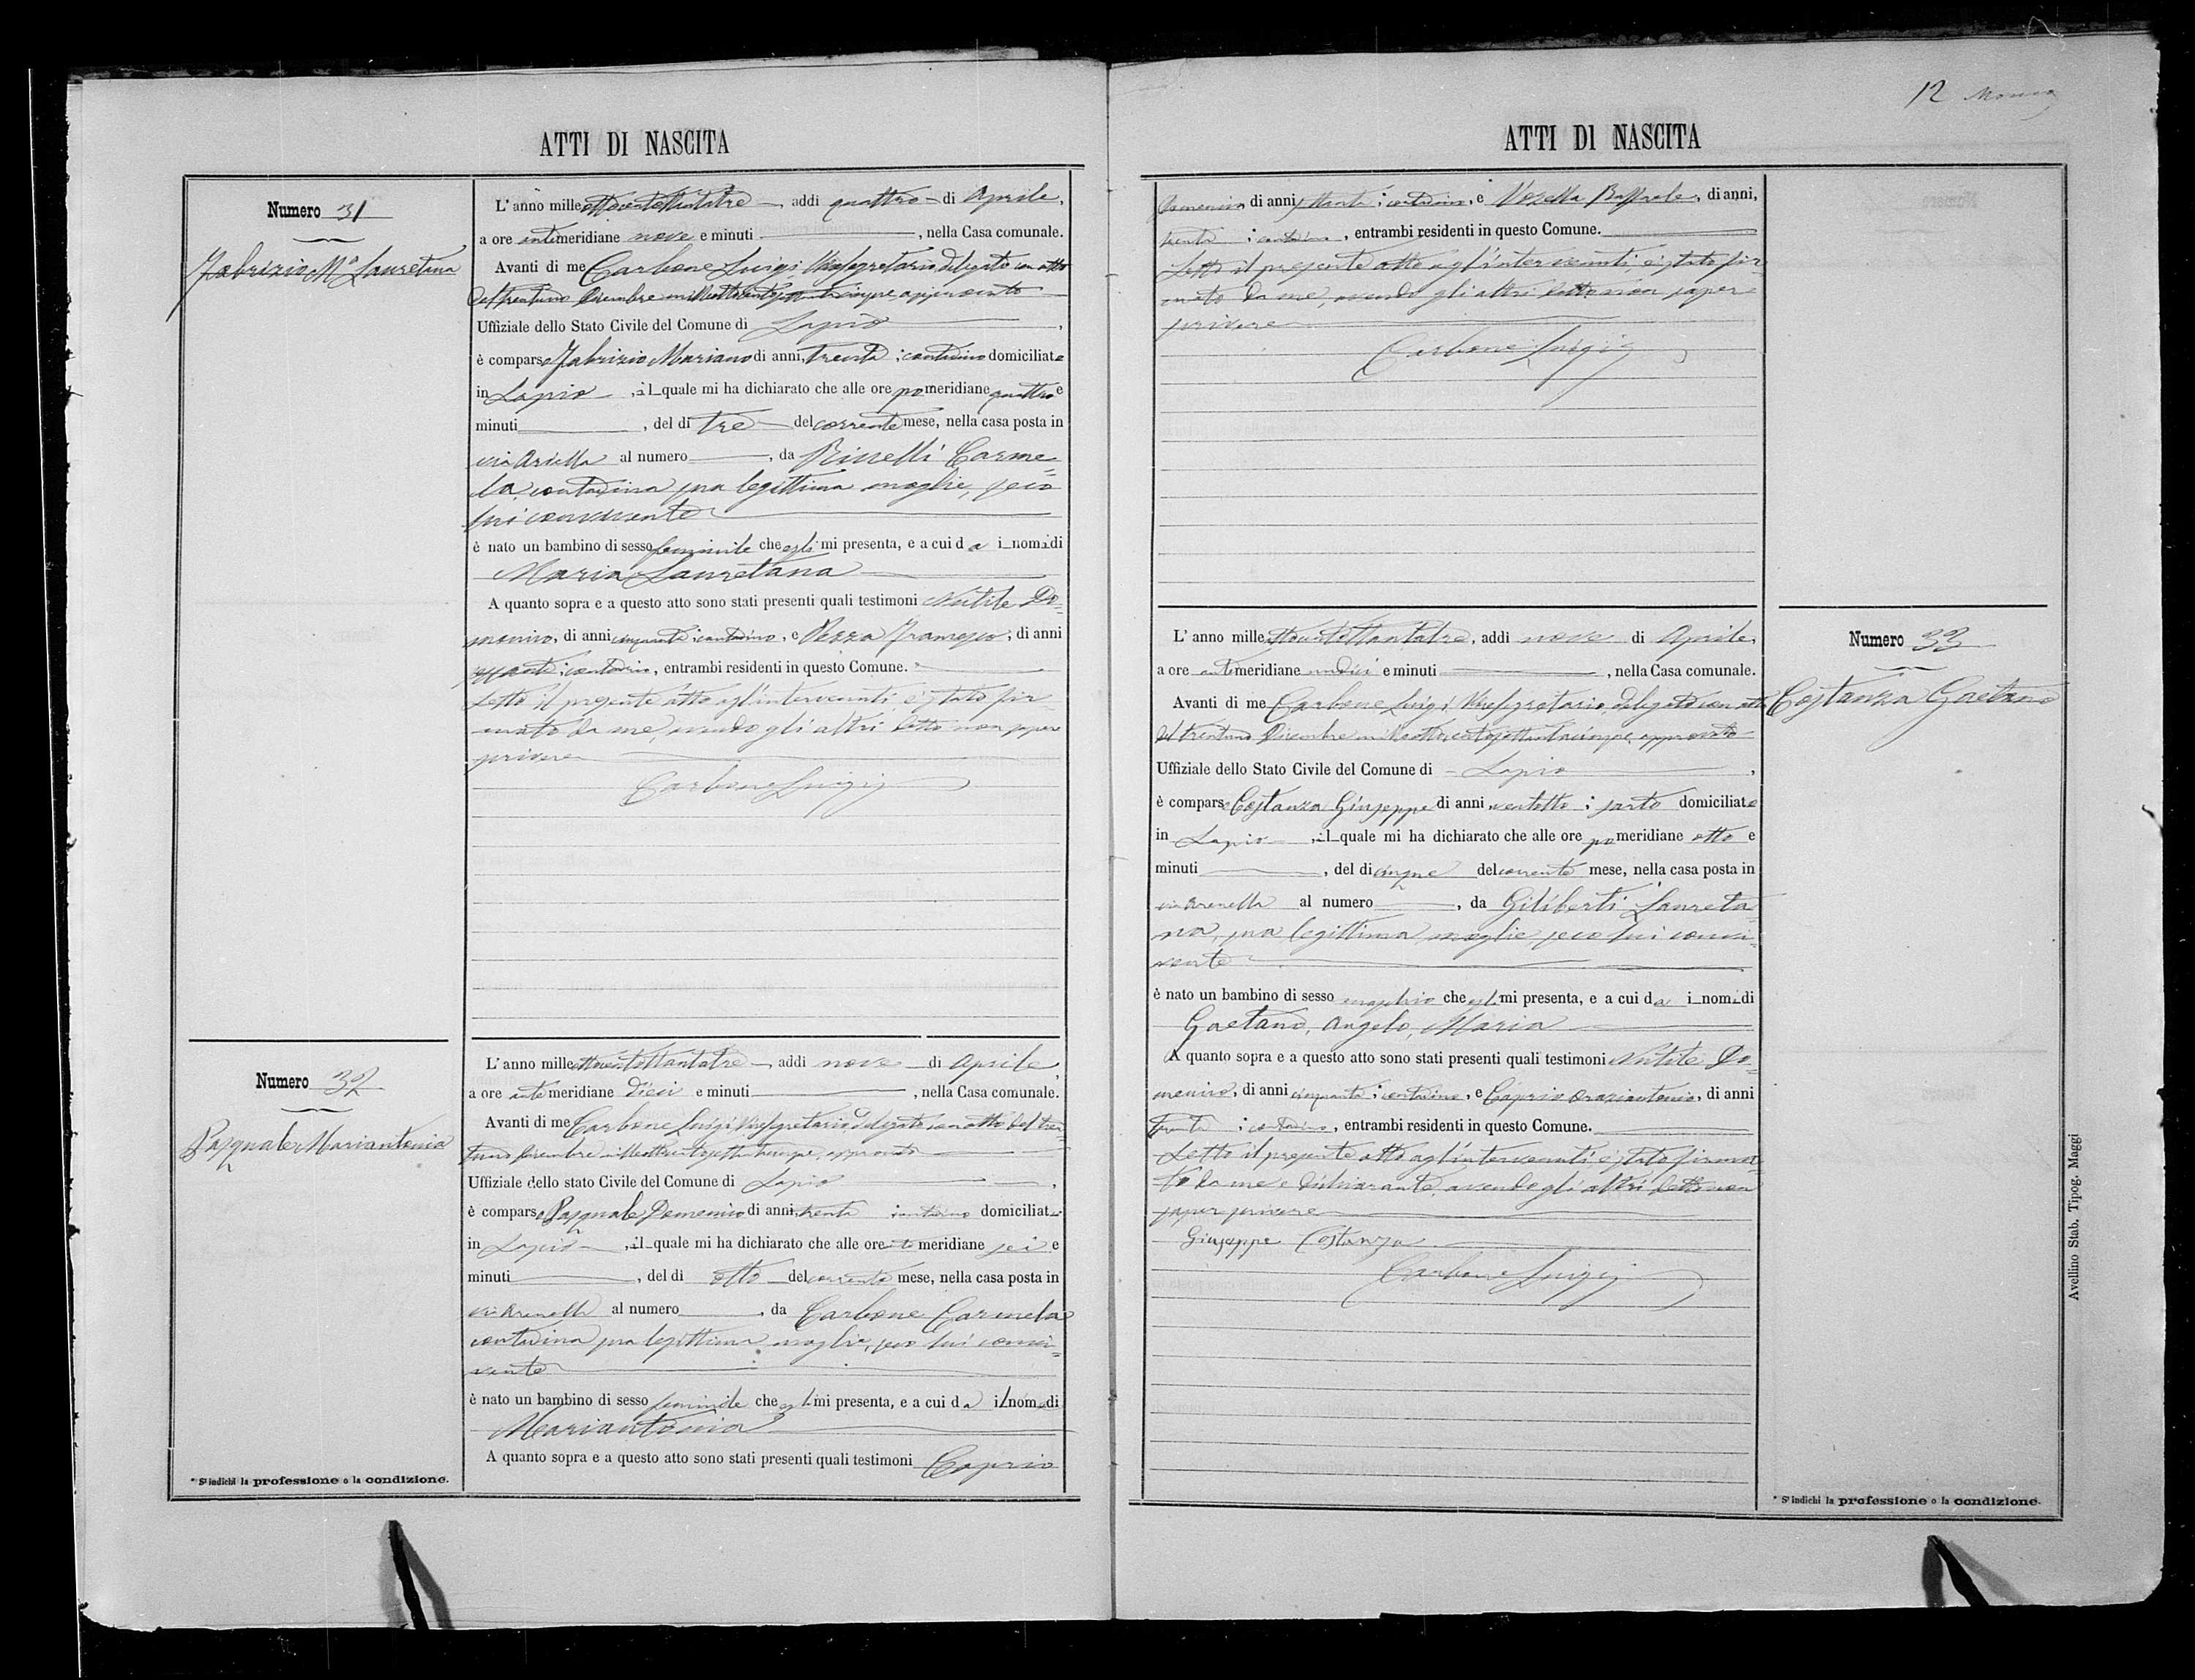 ATTI DI NASCITA
Numero 31
Fabrizio Mª Lauretana
L'anno mille ottocentottantatre, addi quattro di Aprile,
a ore antimeridiane nove e minuti , nella Casa comunale.
Avanti di me Carbone Luigi, Vicesegretario delegato con atto
del trentuno Dicembre milleottocentosettantacinque approvato
Uffiziale dello Stato Civile del Comune di Lapio,
è comparso Fabrizio Mariano di anni, trenta; contadino domiciliato
in Lapio, il quale mi ha dichiarato che alle ore pomeridiane quattro e
minuti , del di tre del corrente mese, nella casa posta in
via Ariella al numero , da Rinelli Carme=
la contadina sua legittima moglie, seco
lui convivente
è nato un bambino di sesso femminile che egli mi presenta, e a cui da i nomi di
Maria Lauretana
A quanto sopra e a questo atto sono stati presenti quali testimoni Nutile Do=
menico, di anni cinquanta; contadino, e Pezza Francesco, di anni
sessanta; contadino, entrambi residenti in questo Comune.
Letto il presente atto agl'intervenuti, è stato fir=
mato da me, avendo gli altri detto non saper
scrivere
Carbone Luigi
Numero 32
Pasquale Mariantonia
L'anno mille ottocentottantatre, addi nove di Aprile,
a ore antimeridiane dieci e minuti , nella Casa comunale.
Avanti di me Carbone Luigi Vicesegretario delegato con atto del tren=
tuno Dicembre milleottocentosettantacinque, approvato
Uffiziale dello stato Civile del Comune di Lapio,
è comparso Pasquale Domenico di anni, trenta contadino domiciliato
in Lapio, il quale mi ha dichiarato che alle ore meridiane sei e
minuti , del di otto del corrente mese, nella casa posta in
via Arenella al numero , da Carbone Carmela
contadina sua legittima moglie, seco lui convi=
vente
è nato un bambino di sesso femminile che egli mi presenta, e a cui da il nome di
Mariantonia
A quanto sopra e a questo atto sono stati presenti quali testimoni Caprio
* Si indichi la professione o la condizione.
12
ATTI DI NASCITA
Domenico di anni settanta; contadino, e Vozella Raffaele, di anni,
trenta; contadino, entrambi residenti in questo Comune.
Letto il presente atto agl'intervenuti, è stato fir=
mato da me, avendo gli altri detto non saper
scrivere
Carbone Luigi
Numero 33
Costanza Gaetano
L'anno mille ottocentottantatre, addi nove di Aprile,
a ore antimeridiane undici e minuti , nella Casa comunale.
Avanti di me Carbone Luigi Vicesegretario, delegato con atto
del trentuno Dicembre milleottocentosettantacinque, approvato
Uffiziale dello Stato Civile del Comune di Lapio,
è comparso Costanza Giuseppe di anni ventotto; sarto domiciliato
in Lapio, il quale mi ha dichiarato che alle ore pomeridiane otto e
minuti , del di cinque del corrente mese, nella casa posta in
via Arenella al numero , da Giliberti Laureta=
na, sua legittima moglie seco lui convi=
vente
è nato un bambino di sesso maschio che egli mi presenta, e a cui da i nomi di
Gaetano, Angelo, Maria
A quanto sopra e a questo atto sono stati presenti quali testimoni Nutile Do=
menico, di anni cinquanta; contadino, e Caprio Oraziantonio, di anni
trenta; contadino, entrambi residenti in questo Comune.
Letto il presente atto agl'intervenuti, è stato firma=
to da me e dichiarante, avendo gli altri detto non
saper scrivere
Giuseppe Costanza
Carbone Luigi
* Si indichi la professione o la condizione.
Avellino Stab. Tipog. Maggi